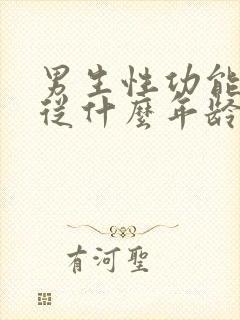 男生性功能
從什麼年齡
有河聖